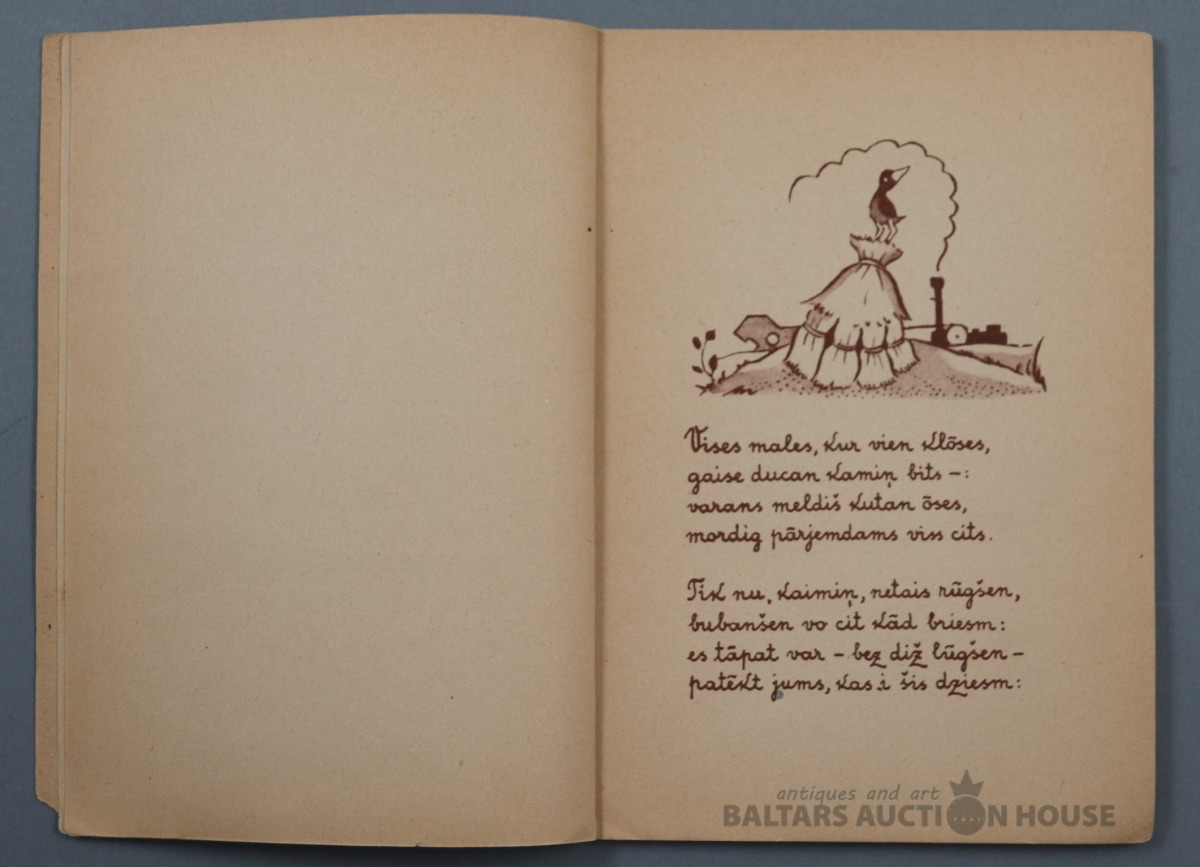 Vises males, kur vien klōses,
gaise ducan kamiņ bits –:
varans meldiš kutan ōses,
mordig pārjemdams viss cits.
Tik nu, kaimiņ, netais rūgšen,
bubanšen vo cit kād briesm:
es tāpat var – bez diž lūgšen –
patēkt jums, kas i šis dziesm:
antiques and art
BALTARS AUCTION HOUSE